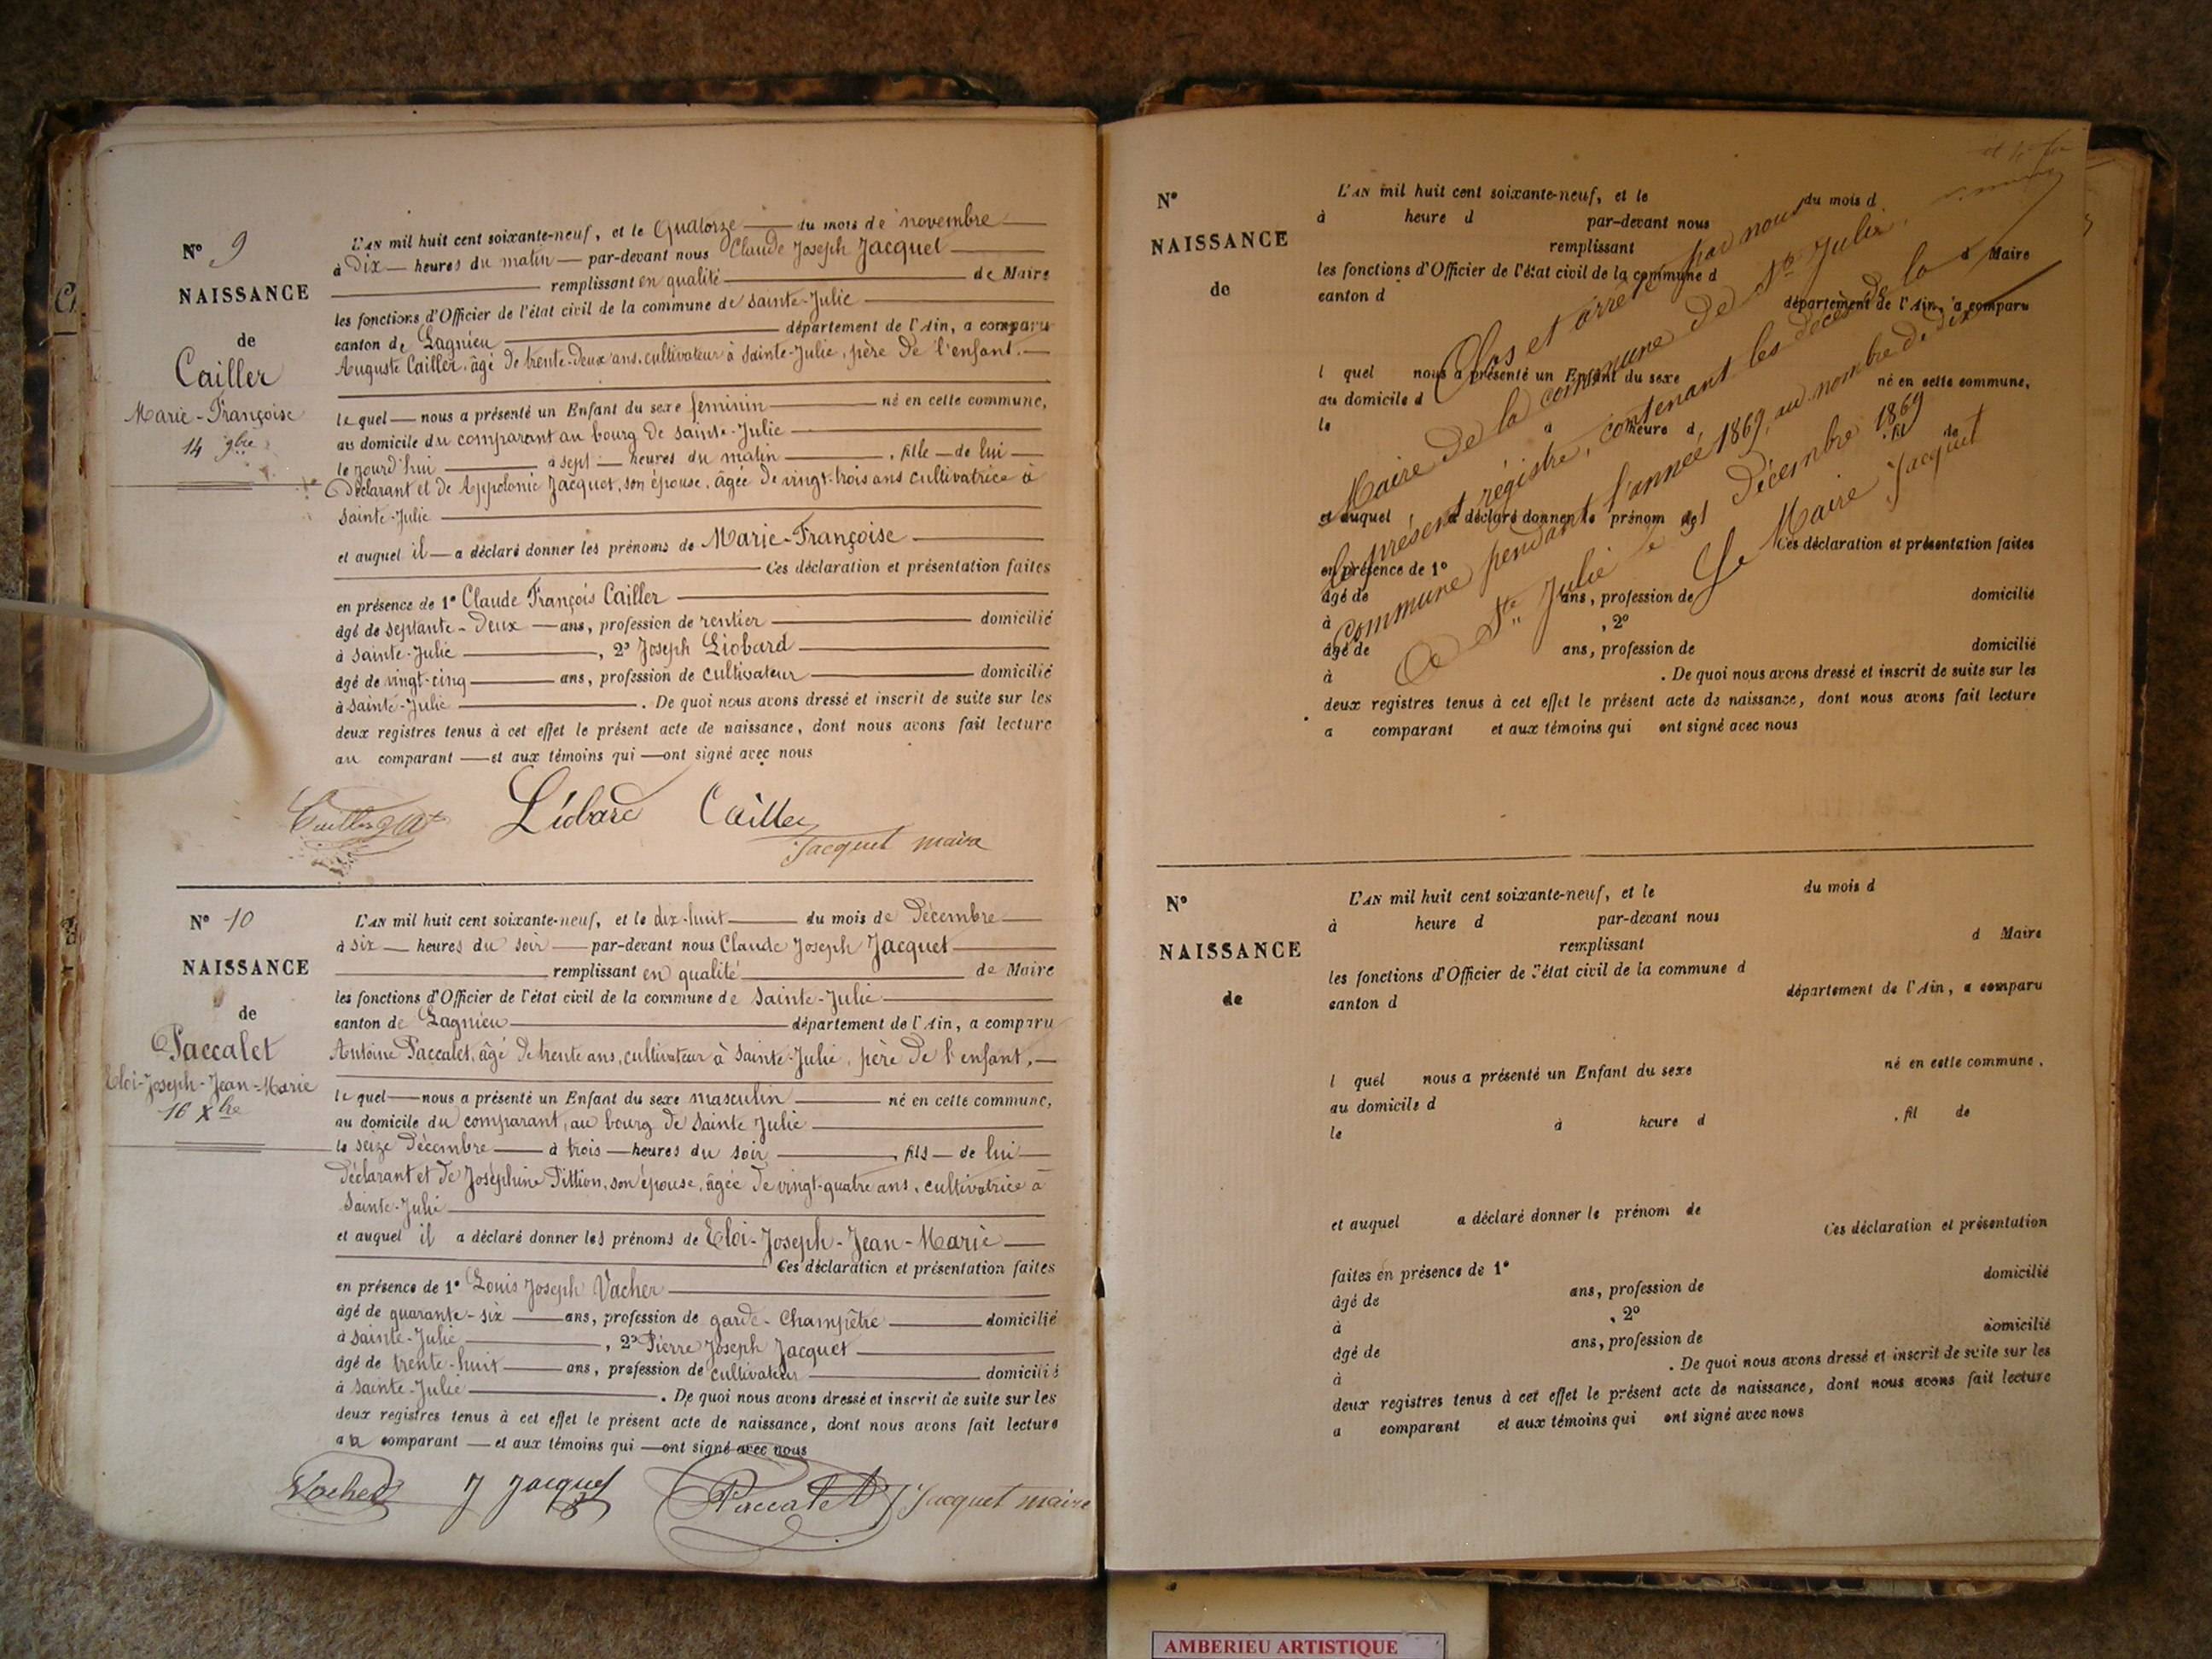 N° 9
NAISSANCE
de
Cailler
Marie-Françoise
14 9bre
L'AN mil huit cent soixante-neuf, et le Quatorze du mois de novembre
à Dix heures du matin par-devant nous Claude Joseph Jacquet
remplissant en qualité de Maire
les fonctions d'Officier de l'état civil de la commune de Sainte-Julie
canton de Lagnieu département de l'Ain, a comparu
Auguste Cailler, âgé de trente-deux ans, cultivateur à Sainte-Julie, père de l'enfant.
le quel nous a présenté un Enfant du sexe feminin né en cette commune,
au domicile du comparant au bourg de Sainte-Julie
le jourd'hui à sept heures du matin, fille de lui
Déclarant et de Appolonie Jacquet, son épouse, âgée de vingt-trois ans cultivatrice à
Sainte-Julie
et auquel il a déclaré donner les prénoms de Marie-Françoise
Ces déclaration et présentation faites
en présence de 1° Claude François Cailler
âgé de septante-deux ans, profession de rentier domicilié
à Sainte-Julie, 2° Joseph Liobard
âgé de vingt-cinq ans, profession de cultivateur domicilié
à Sainte-Julie. De quoi nous avons dressé et inscrit de suite sur les
deux registres tenus à cet effet le présent acte de naissance, dont nous avons fait lecture
au comparant et aux témoins qui ont signé avec nous
Liobard Cailler
Jacquet maire
N° 10
NAISSANCE
de
Paccalet
Eloi-Joseph-Jean-Marie
16 Xbre
L'AN mil huit cent soixante-neuf, et le dix-huit du mois de Décembre
à six heures du soir par-devant nous Claude Joseph Jacquet
remplissant en qualité de Maire
les fonctions d'Officier de l'état civil de la commune de Sainte-Julie
canton de Lagnieu département de l'Ain, a comparu
Antoine Paccalet, âgé de trente ans, cultivateur à Sainte-Julie, père de l'enfant,
le quel nous a présenté un Enfant du sexe masculin né en cette commune,
au domicile du comparant, au bourg de Sainte Julie
le seize Décembre à trois heures du soir, fils de lui
Déclarant et de Joséphine Pittion, son épouse, âgée de vingt-quatre ans, cultivatrice à
Sainte-Julie
et auquel il a déclaré donner les prénoms de Eloi-Joseph-Jean-Marie
Ces déclaration et présentation faites
en présence de 1° Louis Joseph Vacher
âgé de quarante-six ans, profession de garde-Champêtre domicilié
à Sainte-Julie, 2° Pierre Joseph Jacquet
âgé de trente-huit ans, profession de cultivateur domicilié
à Sainte-Julie. De quoi nous avons dressé et inscrit de suite sur les
deux registres tenus à cet effet le présent acte de naissance, dont nous avons fait lecture
au comparant et aux témoins qui ont signé avec nous
Vacher J Jacquet Paccalet Jacquet maire
N°
NAISSANCE
de
L'AN mil huit cent soixante-neuf, et le du mois d
à heure d par-devant nous
remplissant
d Maire
les fonctions d'Officier de l'état civil de la commune d
canton d département de l'Ain, a comparu
l quel nous a présenté un Enfant du sexe né en cette commune,
au domicile d
le à heure d, fil de
et auquel a déclaré donner le prénom de
Ces déclaration et présentation faites
en présence de 1°
âgé de ans, profession de domicilié
à , 2°
âgé de ans, profession de domicilié
à . De quoi nous avons dressé et inscrit de suite sur les
deux registres tenus à cet effet le présent acte de naissance, dont nous avons fait lecture
a comparant et aux témoins qui ont signé avec nous
Clos et arrêté par nous
Maire de la commune de Ste Julie,
le présent régistre, contenant les décès de la
commune pendant l'année 1869, au nombre de dix
A Ste Julie le 31 décembre 1869
Le Maire Jacquet
N°
NAISSANCE
de
L'AN mil huit cent soixante-neuf, et le du mois d
à heure d par-devant nous
remplissant
d Maire
les fonctions d'Officier de l'état civil de la commune d
canton d département de l'Ain, a comparu
l quel nous a présenté un Enfant du sexe né en cette commune,
au domicile d
le à heure d, fil de
et auquel a déclaré donner le prénom de
Ces déclaration et présentation
faites en présence de 1°
âgé de ans, profession de domicilié
à , 2°
âgé de ans, profession de domicilié
à . De quoi nous avons dressé et inscrit de suite sur les
deux registres tenus à cet effet le présent acte de naissance, dont nous avons fait lecture
a comparant et aux témoins qui ont signé avec nous
AMBERIEU ARTISTIQUE